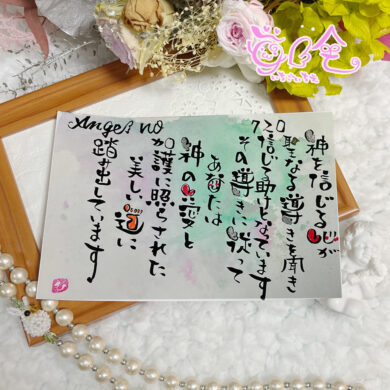 Angel NO
720
神を信じる心が
聖なる導きを聞き
信じて助けとなっています
その導きに従って
あなたは
神の愛と
加護に照らされた
美しい道に
踏み出しています